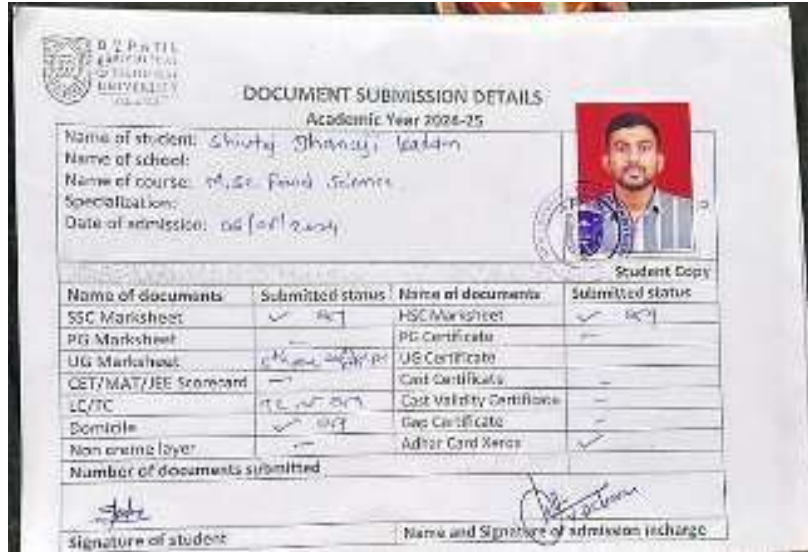 D Y PATIL
AGRICULTURE
& TECHNICAL
UNIVERSITY
DOCUMENT SUBMISSION DETAILS
Academic Year 2024-25
Name of student:
Name of school:
Name of course: M.Sc. Food Science
Specialization:
Date of admission:
Student Copy
Name of documents Submitted status Name of documents Submitted status
SSC Marksheet ✓ HSC Marksheet ✓
PG Marksheet — PG Certificate —
UG Marksheet UG Certificate
CET/MAT/JEE Scorecard — Cast Certificate —
LC/TC Cast Validity Certificate —
Domicile ✓ Gap Certificate —
Non creme layer — Adhar Card Xerox ✓
Number of documents submitted
Signature of student Name and Signature of admission incharge